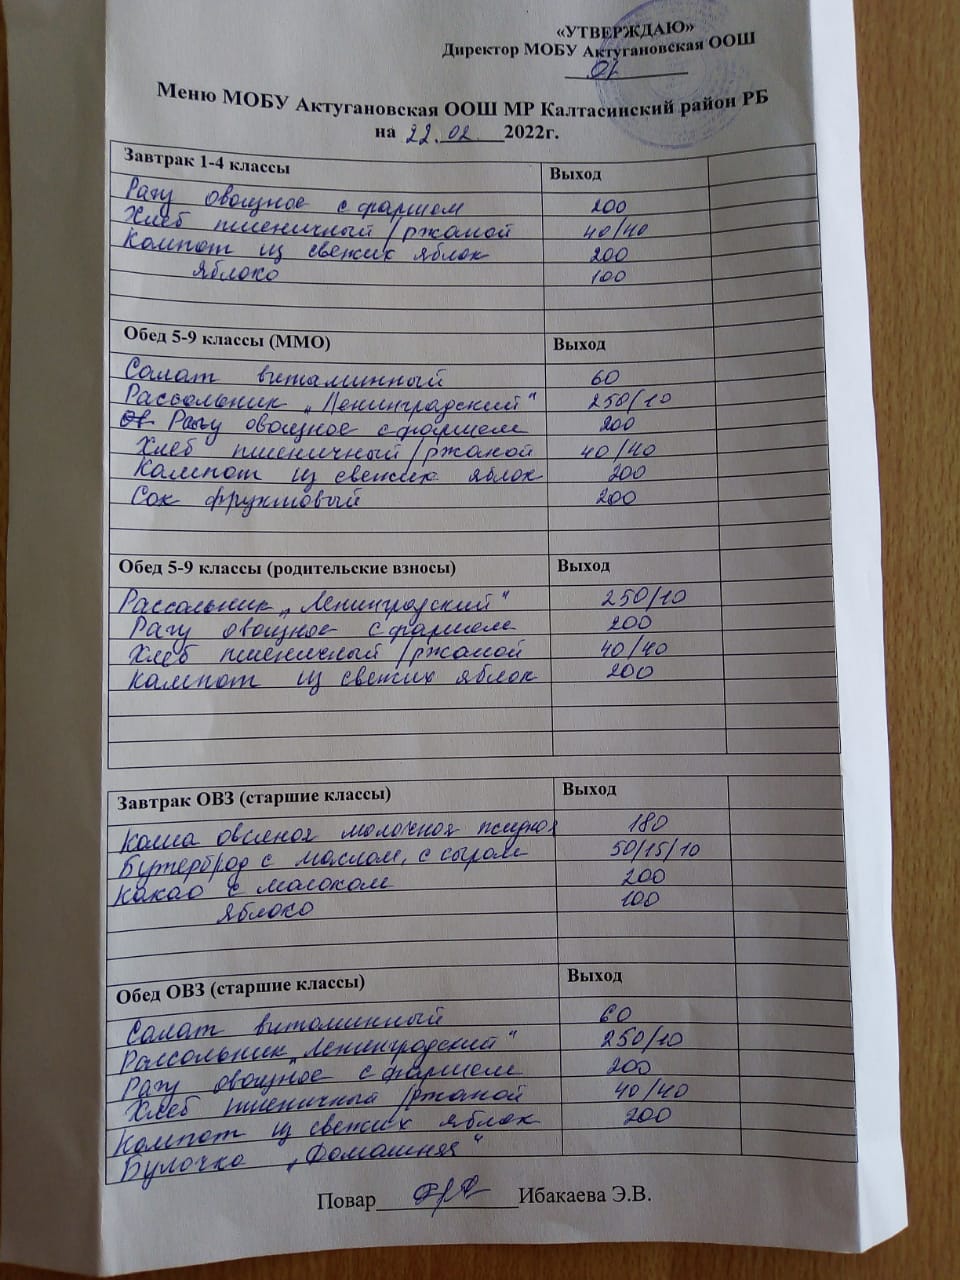 «УТВЕРЖДАЮ»
Директор МОБУ Актугановская ООШ
Меню МОБУ Актугановская ООШ МР Калтасинский район РБ
на 22.02 2022г.
Завтрак 1-4 классы Выход
Рагу овощное с фаршем 200
Хлеб пшеничный/ржаной 40/40
Компот из свежих яблок 200
яблоко 100
Обед 5-9 классы (ММО) Выход
Салат витаминный 60
Рассольник „Ленинградский“ 250/10
Рагу овощное с фаршем 200
Хлеб пшеничный/ржаной 40/40
Кампот из свежих яблок 200
Сок фруктовый 200
Обед 5-9 классы (родительские взносы) Выход
Рассольник „Ленинградский“ 250/10
Рагу овощное с фаршем 200
Хлеб пшеничный/ржаной 40/40
Кампот из свежих яблок 200
Завтрак ОВЗ (старшие классы) Выход
Каша овсяная молочная жидкая 180
Бутерброд с маслом, с сыром 50/15/10
Какао с молоком 200
яблоко 100
Обед ОВЗ (старшие классы) Выход
Салат витаминный 60
Рассольник „Ленинградский“ 250/10
Рагу овощное с фаршем 200
Хлеб пшеничный/ржаной 40/40
Компот из свежих яблок 200
Булочка „Домашняя“
Повар Ибакаева Э.В.